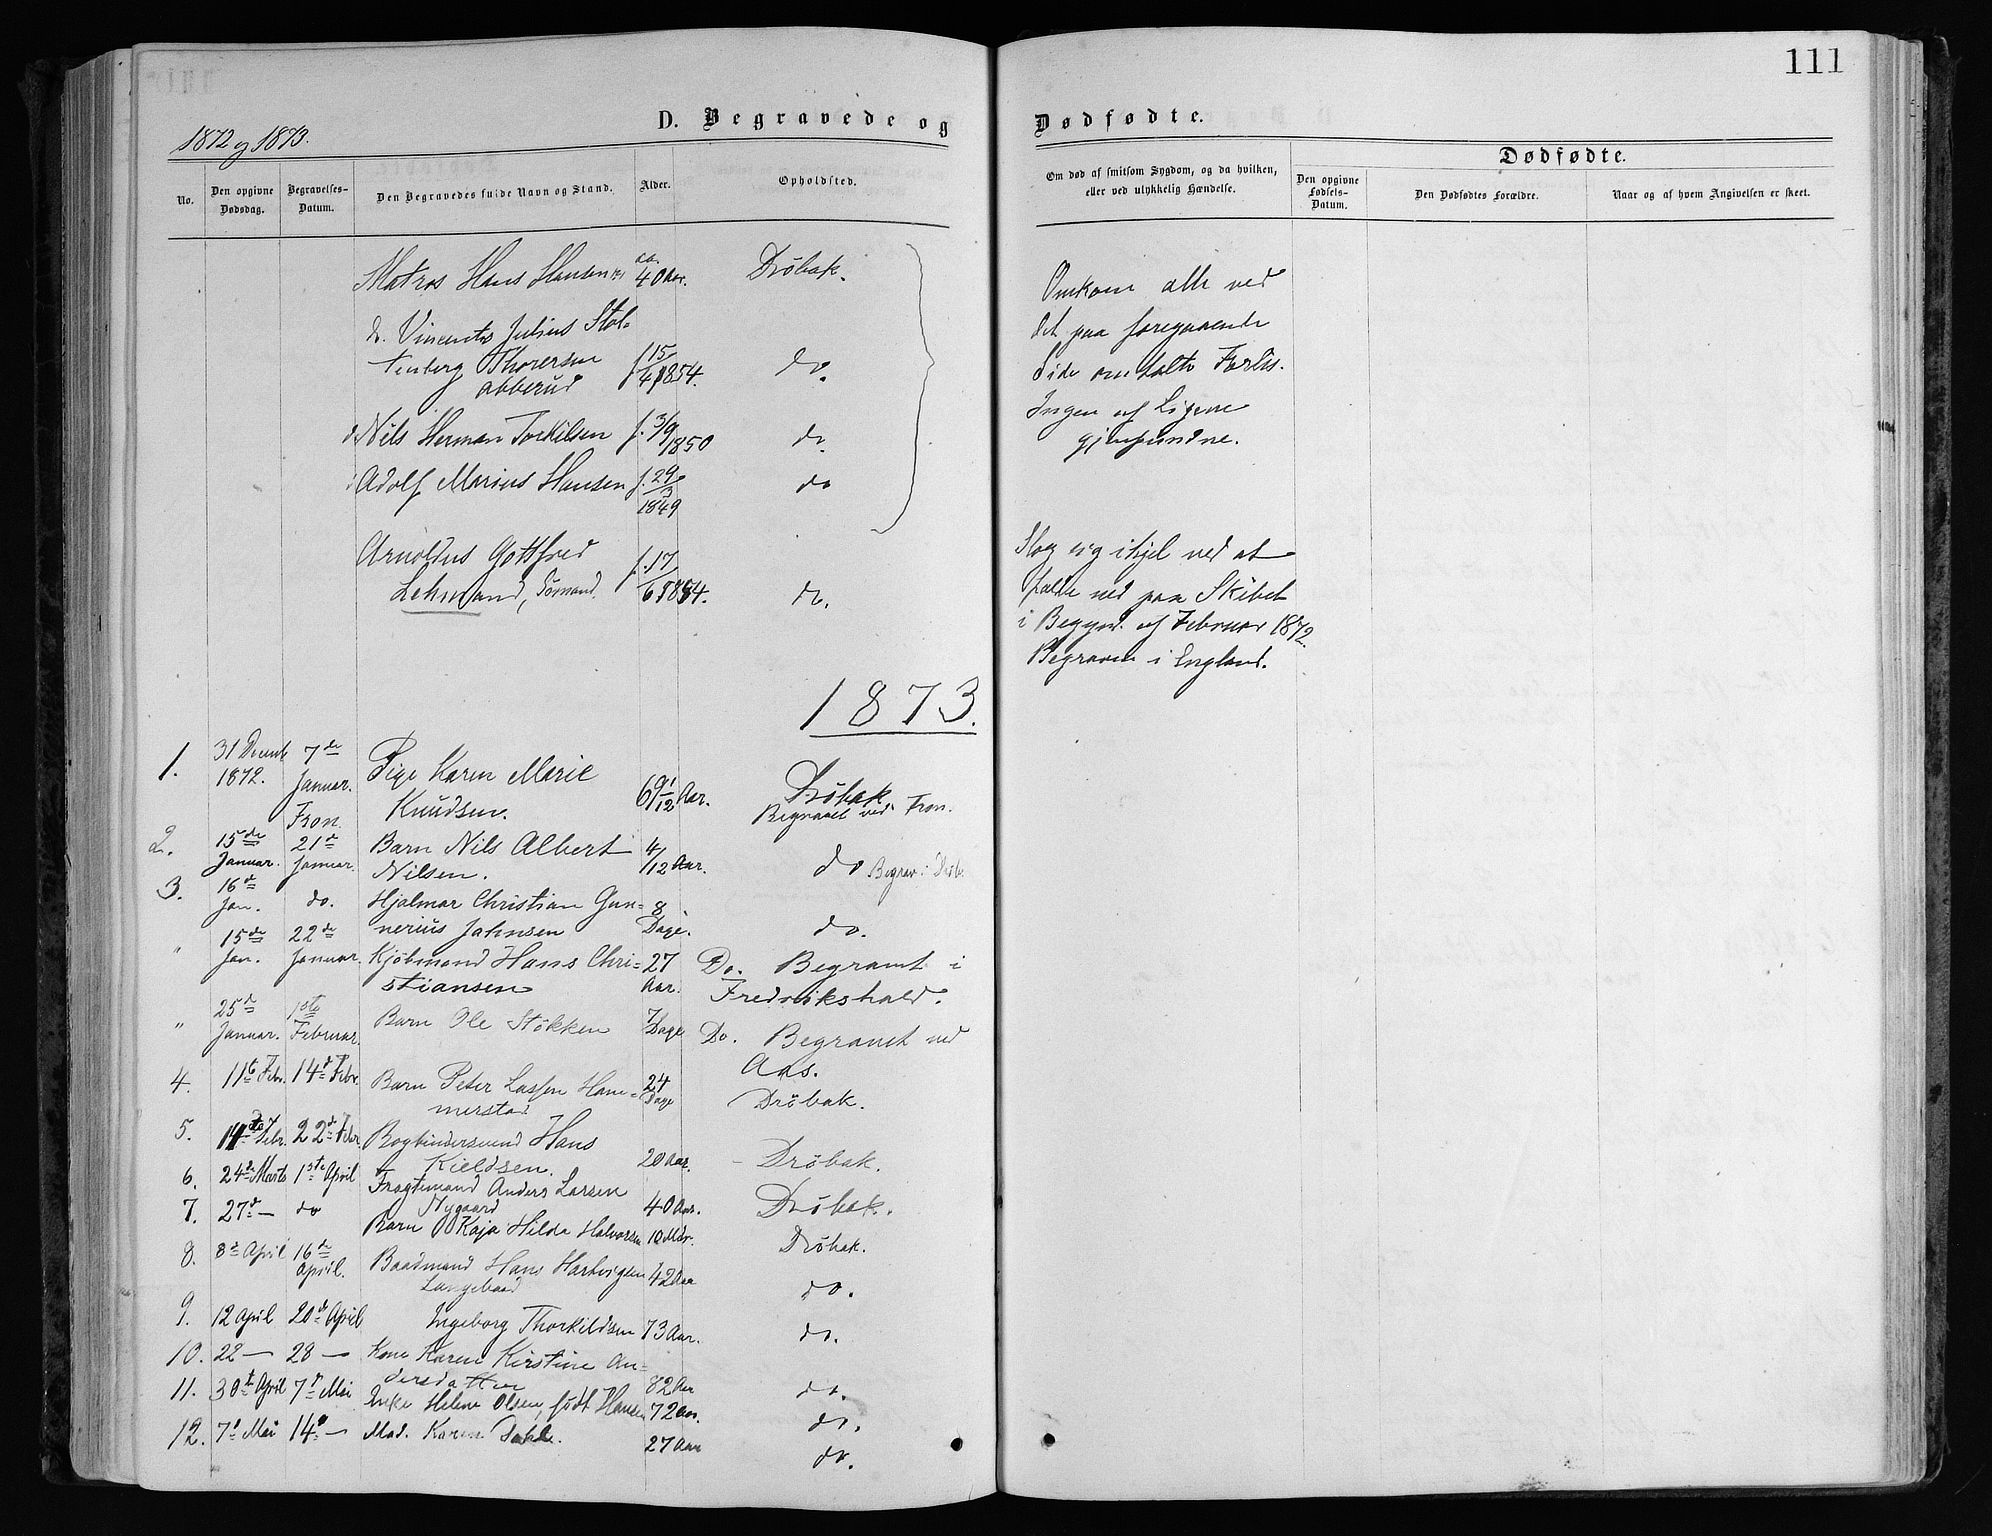 111
D. Begravede og Dødfødte.
1872 og 1873.
No.
Den opgivne Dødsdag.
Begravelses-Datum.
Den Begravedes fulde Navn og Stand.
Alder.
Opholdsted.
Om død af smitsom Sygdom, og da hvilken,
eller ved ulykkelig Hændelse.
Dødfødte.
Den opgivne Fødsels-Datum.
Den Dødfødtes Forældre.
Naar og af hvem Angivelsen er skeet.
Matros Hans Hansen ca. 40 Aar. Dröbak.
do. Vincents Julius Stol-
tenberg Thorersen f. 15/4 1854. do.
Nils Herman Torkilsen f. 3/9 1850 do.
Adolf Marius Hansen f. 29/3 1849 do
Omkom alle ved
det paa foregaaende
Side omtalte Forlis.
Ingen af Ligene
gjenfundne.
Arnoldus Gottfred f. 17/6
Lehmand, Sømand. do.
Slog sig ihjel ved at
falde ned paa Skibet
i Begynd. af Februar 1872.
Begraven i England.
1873.
1. 31 Decemb 7de Pige Karen Marie
1872. Januar. Knudsen. 69 1/12 Aar. Dröbak
Fron. Begravet ved Fron.
2. 15de 21d Barn Nils Albert 4/12 Aar. do Begrav. i Dröb.
Januar. Januar. Nilsen.
3. 16d do. Hjalmar Christian Gun- 8
Jan. nerius Jahnsen Dage. do.
" 15de 22de Kjöbmand Hans Chri- 27 Do. Begravet i
Jan. Januar. stiansen Aar. Fredrikshald.
" 25d 1ste Barn Ole Stökken 7 Dage Do. Begravet ved
Januar. Februar. Aas.
4. 11te Febr. 14d Febr. Barn Peter Lassen Ham- 24 Dage Dröbak.
merstad
5. 14de Febr. 22d Febr Bogbindersvend Hans
Kieldsen. 20 Aar. – Dröbak.
6. 24de Marts 1ste April Fragtemand Anders Larsen
Nygaard 40 Aar. Dröbak.
7. 27d — do Barn Kaja Hilda Halvorsen 10 Mdr. Dröbak.
8. 8d April 16de April. Baadsmand Hans Hartvigsen 42 Aar do.
Langebaad
9. 12 April 20d April Ingeborg Thorkildsen 73 Aar. do.
10. 22 — 28 — Kone Karen Kirstine An-
dersdatter 82 Aar do.
11. 30t April 7d Mai Enke Helene Olsen, født Hansen 72 Aar. do.
12. 7d Mai 14d — Mad. Karen Dahl. 27 Aar do.